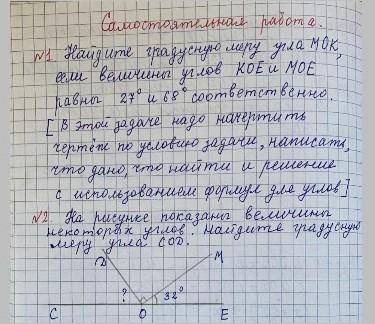 Самостоятельная работа.
№1. Найдите градусную меру угла МОК,
если величины углов КОЕ и МОЕ
равны 27° и 68° соответственно.
[В этой задаче надо начертить
чертёж по условию задачи, написать,
что дано, что найти и решение
с использованием формул для углов]
№2. На рисунке показаны величины
некоторых углов. Найдите градусную
меру угла COD.
D
M
?
32°
C
O
E